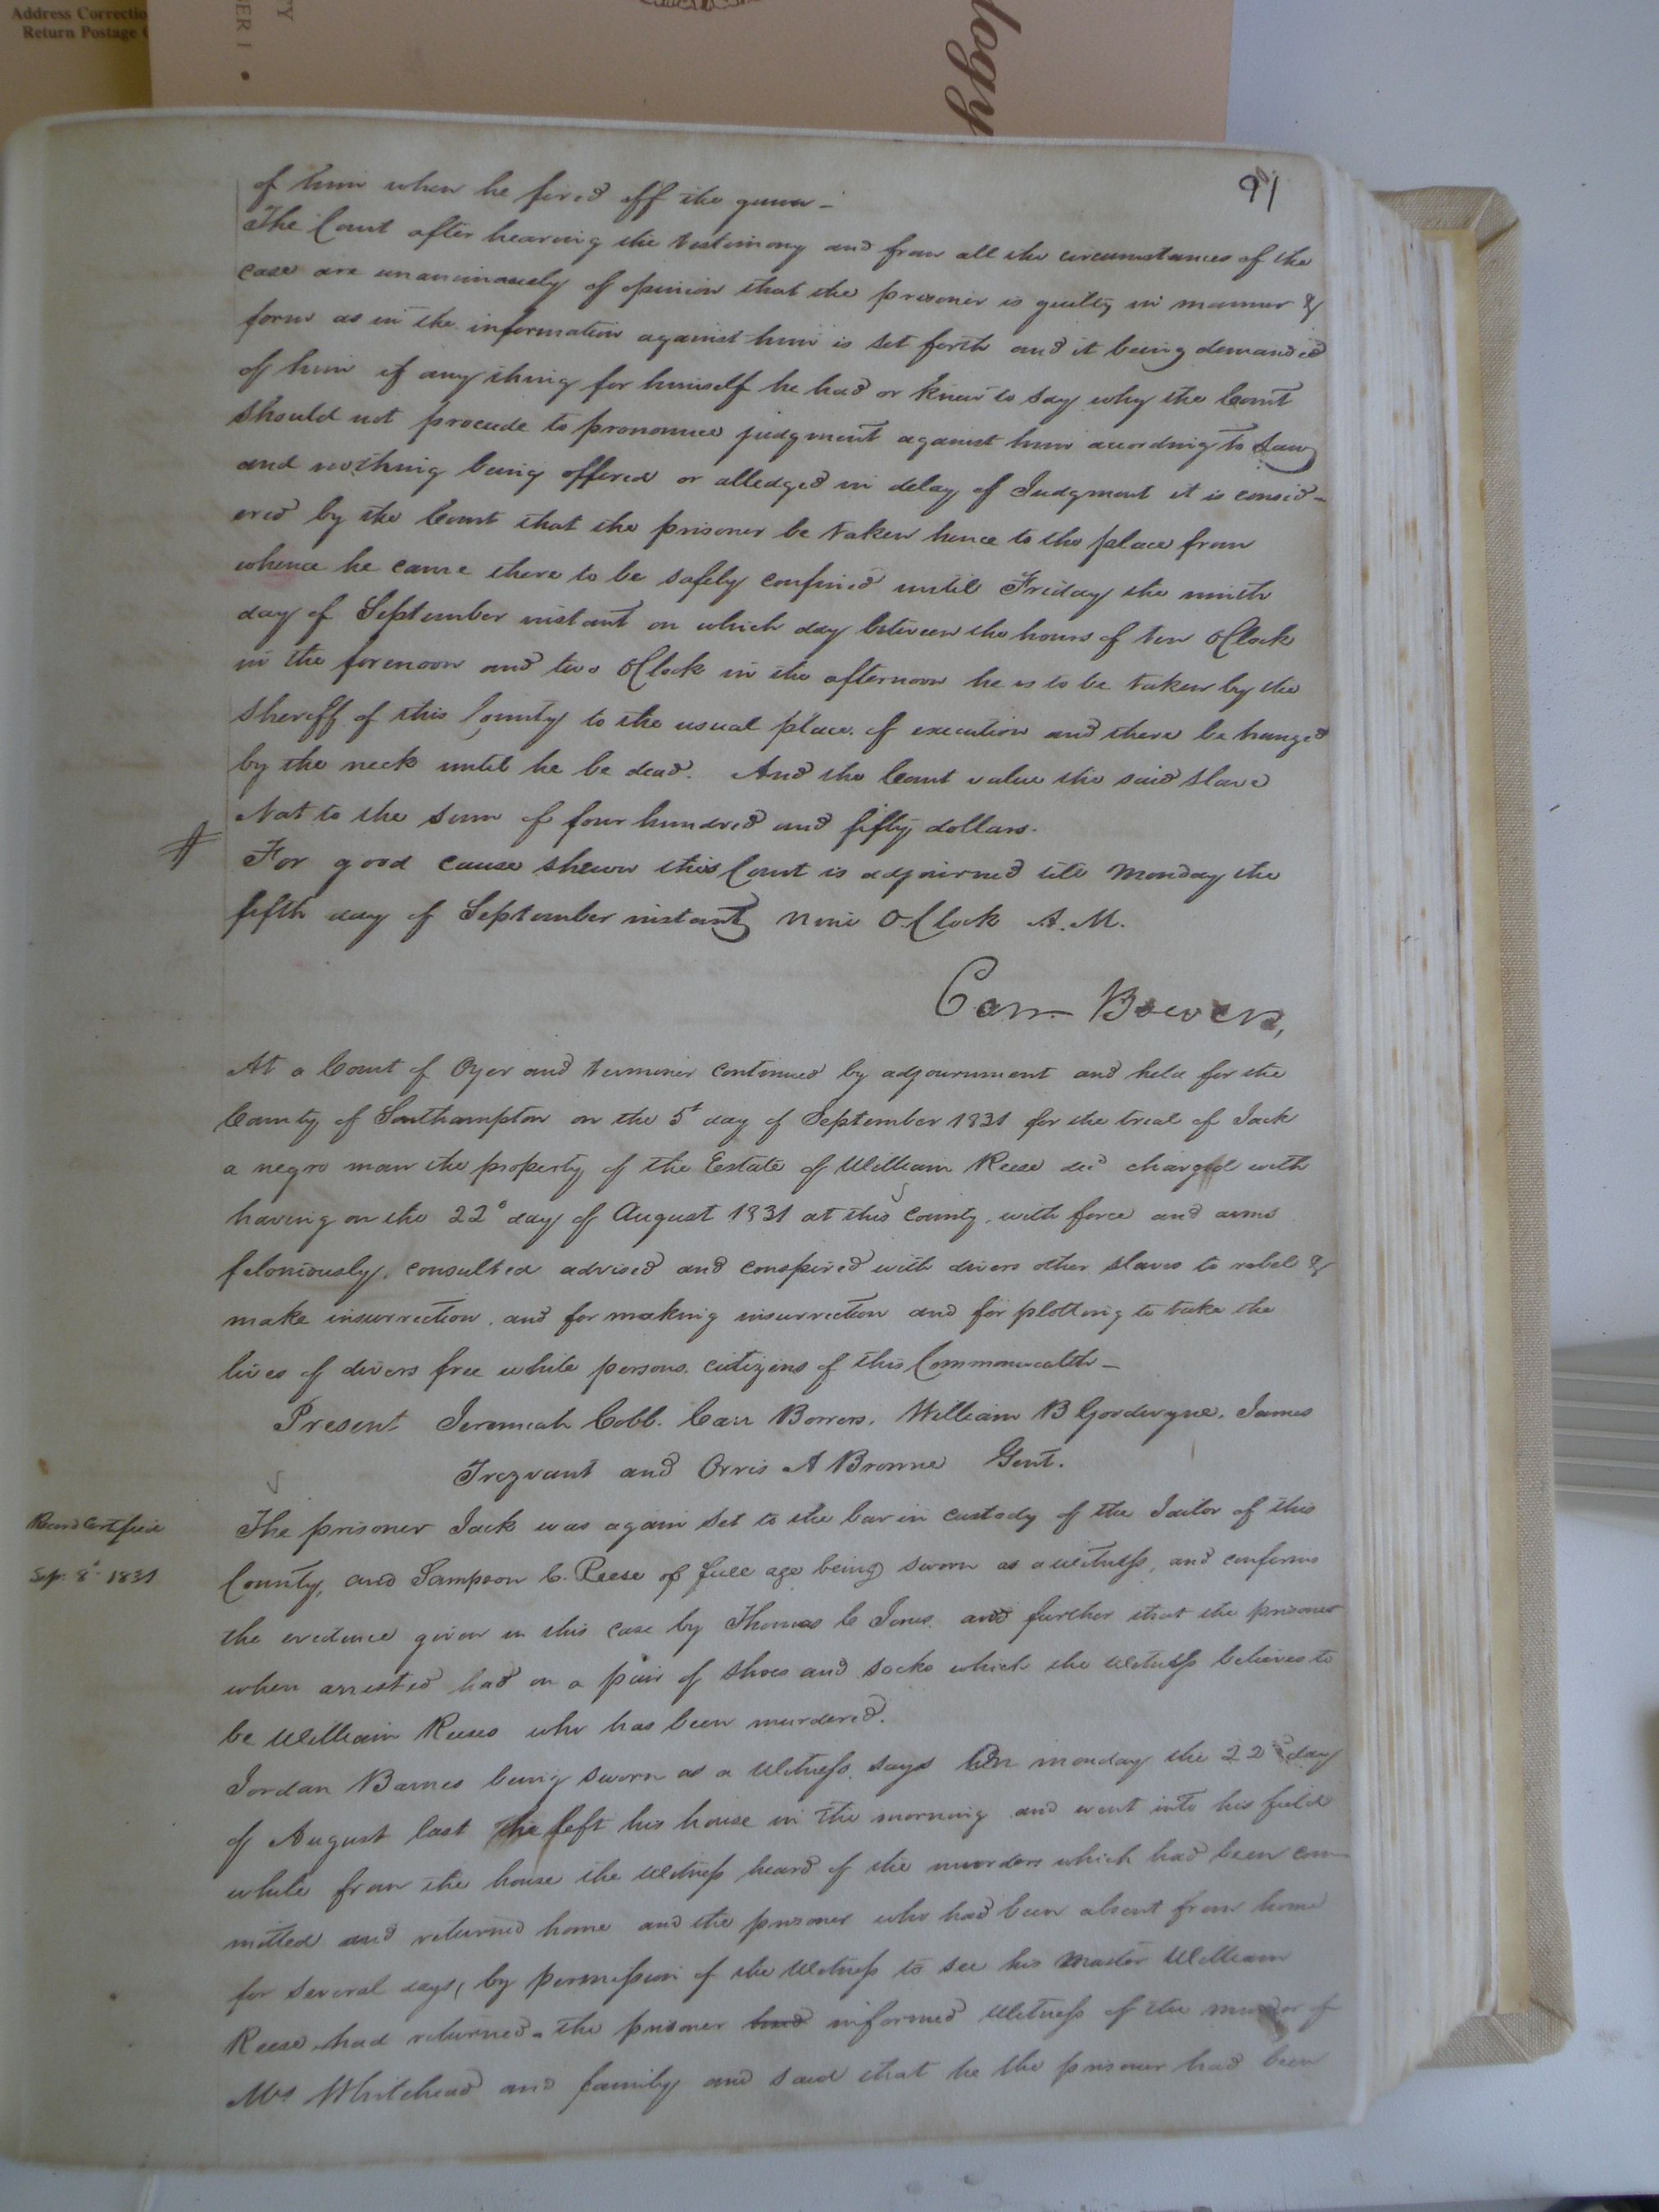 Address Correctio
Return Postage
TY
ER I •
logy
91
of him when he fired off the gunn -
The Court after hearing the testimony and from all the circumstances of the
case are unanimously of opinion that the prisoner is guilty in manner &
form as in the information against him is set forth and it being demanded
of him if any thing for himself he had or knew to say why the Court
should not procede to pronounce judgment against him according to Law
and nothing being offered or alledged in delay of Judgment it is consid-
ered by the Court that the prisoner be taken hence to the place from
whence he came there to be safely confined until Friday the ninth
day of September instant on which day between the hours of ten OClock
in the forenoon and two OClock in the afternoon he is to be taken by the
Sheriff of this County to the usual place of execution and there be hanged
by the neck until he be dead. And the Court value the said slave
Nat to the sum of four hundred and fifty dollars.
For good cause shewn this Court is adjourned till Monday the
fifth day of September instant nine O.Clock A.M.
Carr Bowers,
At a Court of Oyer and terminer continued by adjournment and held for the
County of Southampton on the 5t day of September 1831 for the trial of Jack
a negro man the property of the Estate of William Reese decd charged with
having on the 22d day of August 1831 at this County, with force and arms
feloniously, consulted advised and conspired with divers other slaves to rebel &
make insurrection, and for making insurrection and for plotting to take the
lives of divers free white persons, citizens of this Commonwealth -
Present Jeremiah Cobb. Carr Bowers. William B Goodwyne. James
Trezvant and Orris A Browne Gent.
Record Certified
Sep. 8th 1831
The prisoner Jack was again set to the bar in custody of the Jailor of this
County, and Sampson C. Reese of full age being sworn as a witness, and confirms
the evidence given in this case by Thomas C Jones and further that the prisoner
when arrested had on a pair of shoes and socks which the witness believes to
be William Reeses who has been murdered.
Jordan Barnes being sworn as a witness, says On monday the 22d day
of August last he left his house in the morning and went into his field
while from the house the witness heard of the murders which had been com-
mitted and returned home and the prisoner who had been absent from home
for several days, by permission of the witness to see his Master William
Reese, had returned. the prisoner had informed witness of the murder of
Mrs Whitehead and family and said that he the prisoner had been